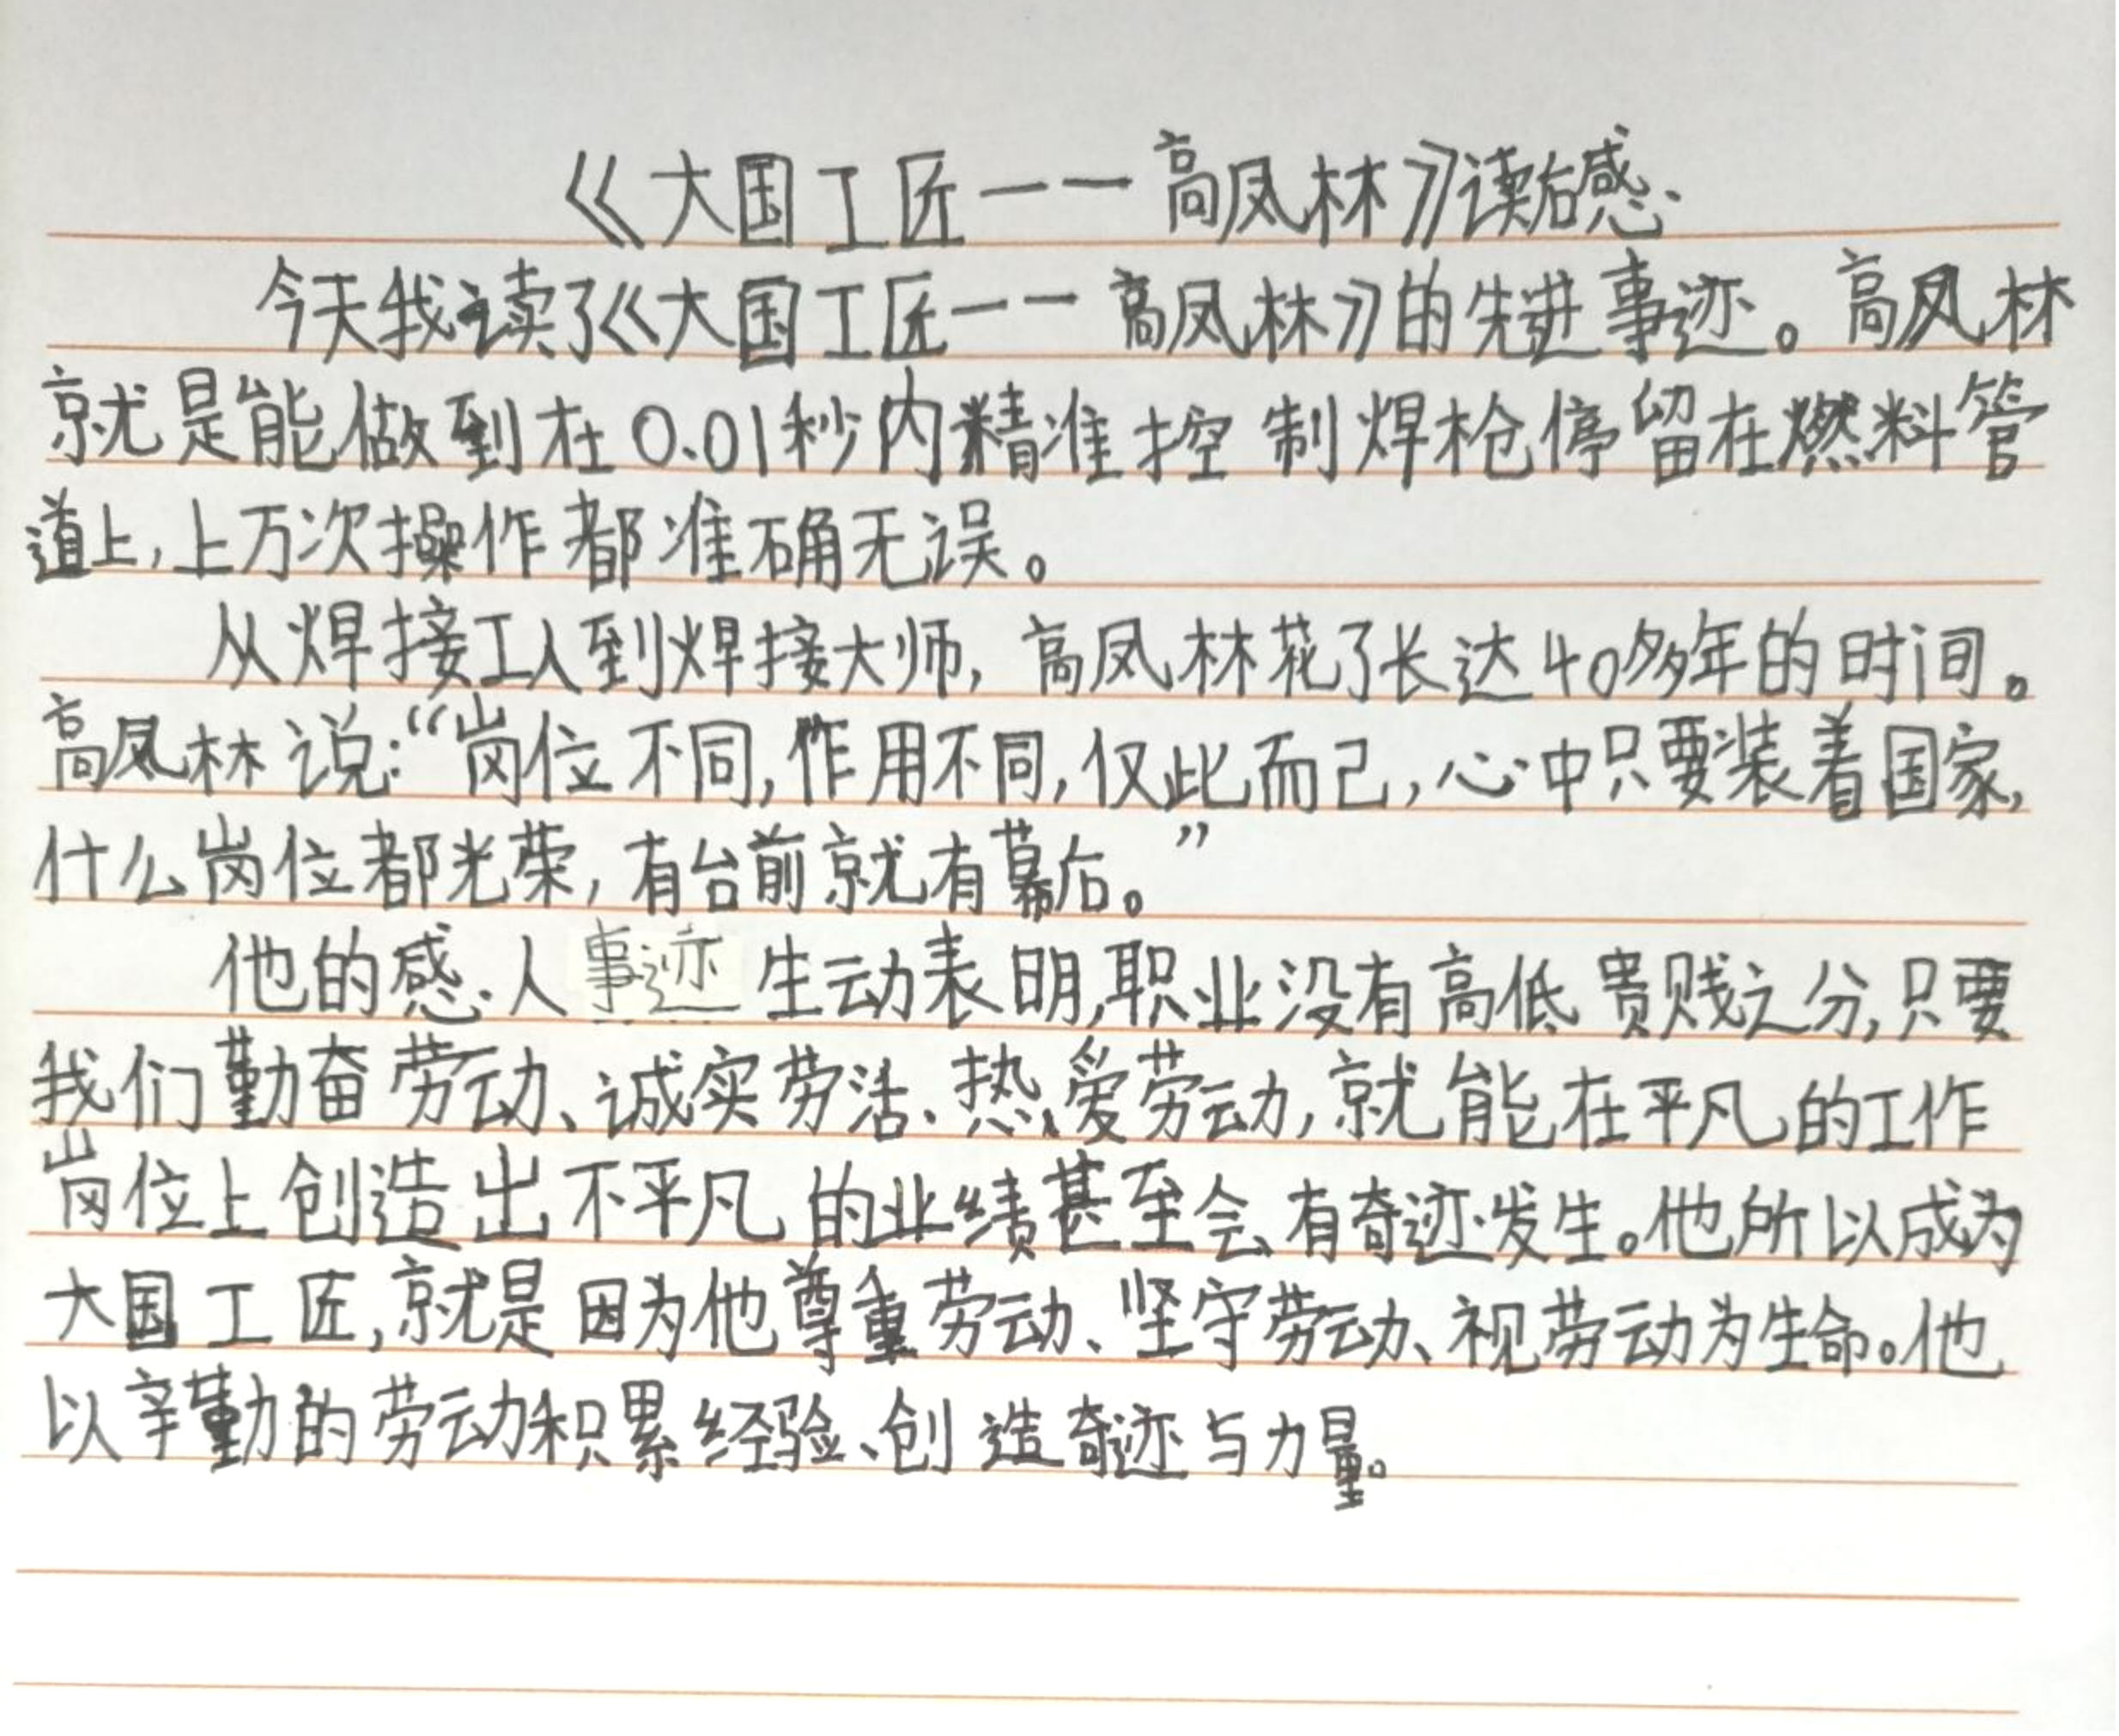 《大国工匠一一高凤林》读后感
今天我读了《大国工匠一一高凤林》的先进事迹。高凤林
就是能做到在0.01秒内精准控制焊枪停留在燃料管
道上,上万次操作都准确无误。
从焊接工人到焊接大师,高凤林花了长达40多年的时间。
高凤林说:“岗位不同,作用不同,仅此而己,心中只要装着国家,
什么岗位都光荣,有台前就有幕后。”
他的感人事迹生动表明,职业没有高低贵贱之分,只要
我们勤奋劳动、诚实劳活、热爱劳动,就能在平凡的工作
岗位上创造出不平凡的业绩甚至会有奇迹发生。他所以成为
大国工匠,就是因为他尊重劳动、坚守劳动、视劳动为生命。他
以辛勤的劳动积累经验、创造奇迹与力量。